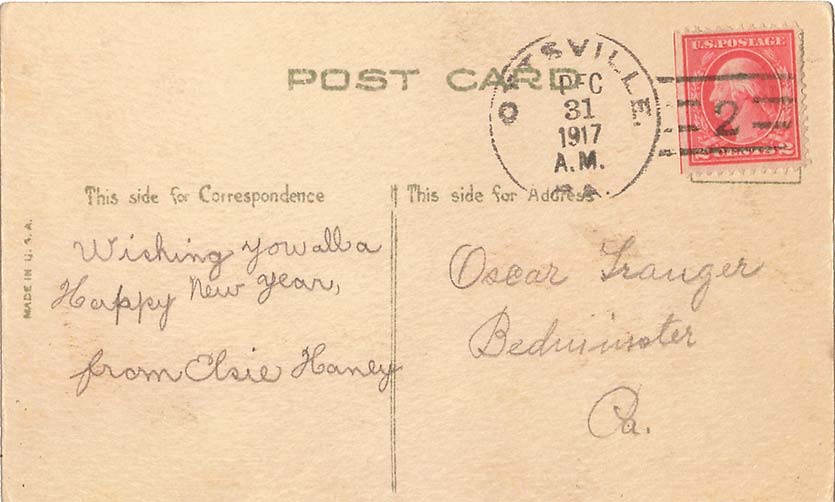 POST CARD
OTTSVILLE.
DEC
31
1917
A.M.
PA.
U.S. POSTAGE
2
2 CENTS 2
This side for Correspondence
This side for Address
MADE IN U.S.A.
Wishing you all a
Happy New Year,
from Elsie Haney
Oscar Tranger
Bedminster
Pa.